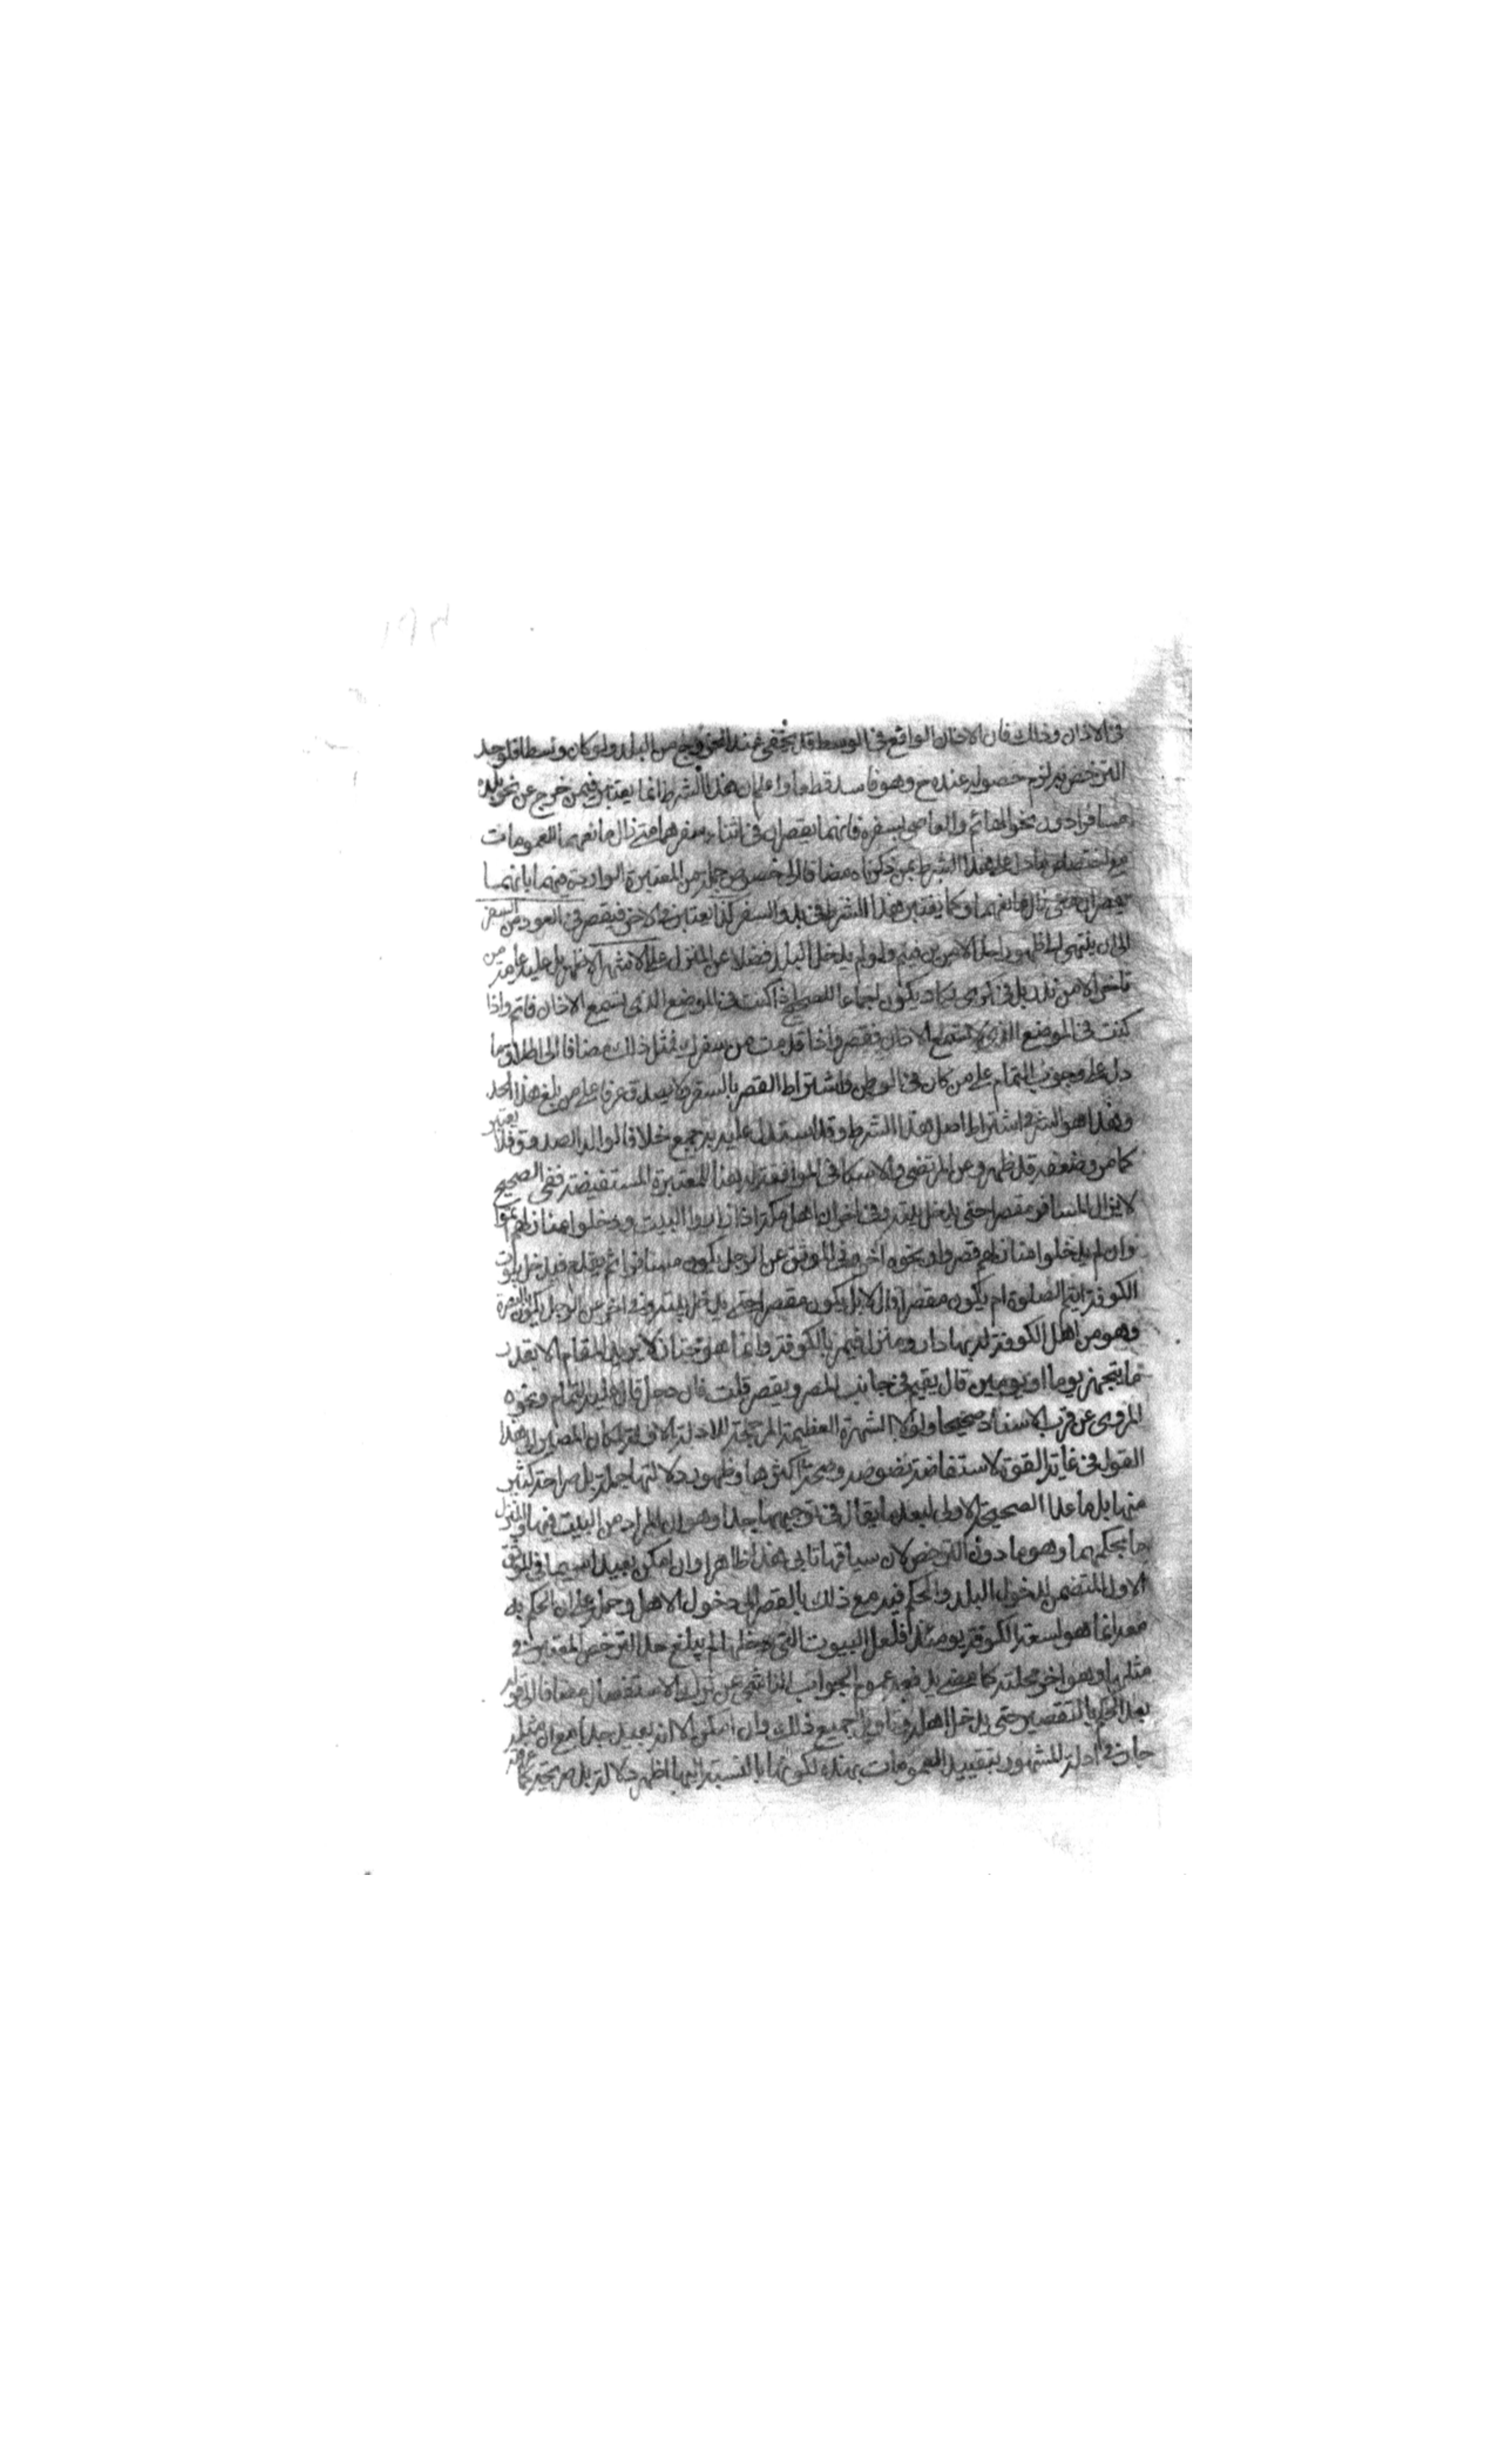 في الاذان وذلك فان الاذان الواقع في الوسط قد يخفى عند الخروج من البلد ولو كان وسطا فلو حد
الترخص به لزم حصوله عنده ح وهو فاسد قطعا واعلم ان هذا الشرط انما يعتبر فيمن خرج عن نحو بلده
مسافرا دون نحو الهائم والعاصي بسفره فانهما يقصران في اثناء سفرهما متى زال مانعهما للعمومات
مع اختصاص ما دل على هذا الشرط بمن ذكرناه مضافا الى خصوص جملة من المعتبرة الواردة فيهما بانهما
يقصران متى زال مانعهما وكما يعتبر هذا الشرط في بدو السفر كذا يعتبر في الاخر فيقصر في العود من السفر
الى ان ينتهي الى ظهور احد الامرين فيتم ولو لم يدخل البلد فضلا عن المنزل على الاشهر الاظهر بل عليه عامة من
تاخر الا من ندر بل في كاد يكون اجماعا للصحيح اذا كنت في الموضع الذي تسمع الاذان فاتم واذا
كنت في الموضع الذي لا تسمع الاذان فقصر واذا قدمت من سفرك فمثل ذلك مضافا الى اطلاق ما
دل على وجوب التمام على من كان في الوطن واشتراط القصر بالسفر ولا يصدق عرفا على من بلغ هذا الحد
وهذا هو السر في اشتراط اصل هذا الشرط وقد استدل عليه به جمع خلافا لوالد الصدوق فلا يعتبر
كما مر وضعفه قد ظهر وعن المرتضى والاسكافي الموافقة له هنا للمعتبرة المستفيضة ففي الصحيح
لا يزال المسافر مقصرا حتى يدخل بيته وفي اخر ان اهل مكة اذا زاروا البيت ودخلوا منازلهم اتموا
وان لم يدخلوا منازلهم قصروا ونحوه اخر وفي الموثق عن الرجل يكون مسافرا ثم يقدم فيدخل بيوت
الكوفة ايتم الصلوة ام يكون مقصرا قال لا بل يكون مقصرا حتى يدخل بيته وفي اخر عن الرجل يكون بالبصرة
وهو من اهل الكوفة له بها دار ومنزل فيمر بالكوفة وانما هو مجتاز لا يريد المقام الا بقدر
ما يتجهز يوما او يومين قال يقيم في جانب المصر ويقصر قلت فان دخل قال عليه التمام ونحوه
المروي عن قرب الاسناد صحيحا ولولا الشهرة العظيمة المرجحة للادلة الاولة لكان المصير الى هذا
القول في غاية القوة لاستفاضة نصوصه وصحة اكثرها وظهور دلالتها جملة بل صراحة كثير
منها بل ما عدا الصحيحة الاولى لبعد ما يقال في توجيهها جدا وهو ان المراد من البيت فيها والمنزل
ما بحكمهما وهو ما دون الترخص لان سياقها تابى هذا ظاهرا وان امكن بعيدا سيما في الموثق
الاول المتضمن لدخول البلد والحكم فيه مع ذلك بالقصر الى دخول الاهل وحمله على ان الحكم به
معه انما هو لسعة الكوفة يومئذ فلعل البيوت التي دخلها لم يبلغ حد الترخص المعتبر في
مثلها وهو اخر محلته كما مضى يدفعه عموم الجواب الناشئ عن ترك الاستفصال مضافا الى قوله
بعد الحكم بالتقصير حتى يدخل اهله وتاويل جميع ذلك وان امكن الا انه بعيد جدا مع ان مثله
جار في ادلة المشهور بتقييد العمومات بهذه لكونها بالنسبة اليها اظهر دلالة بل صريحة كما عرفته